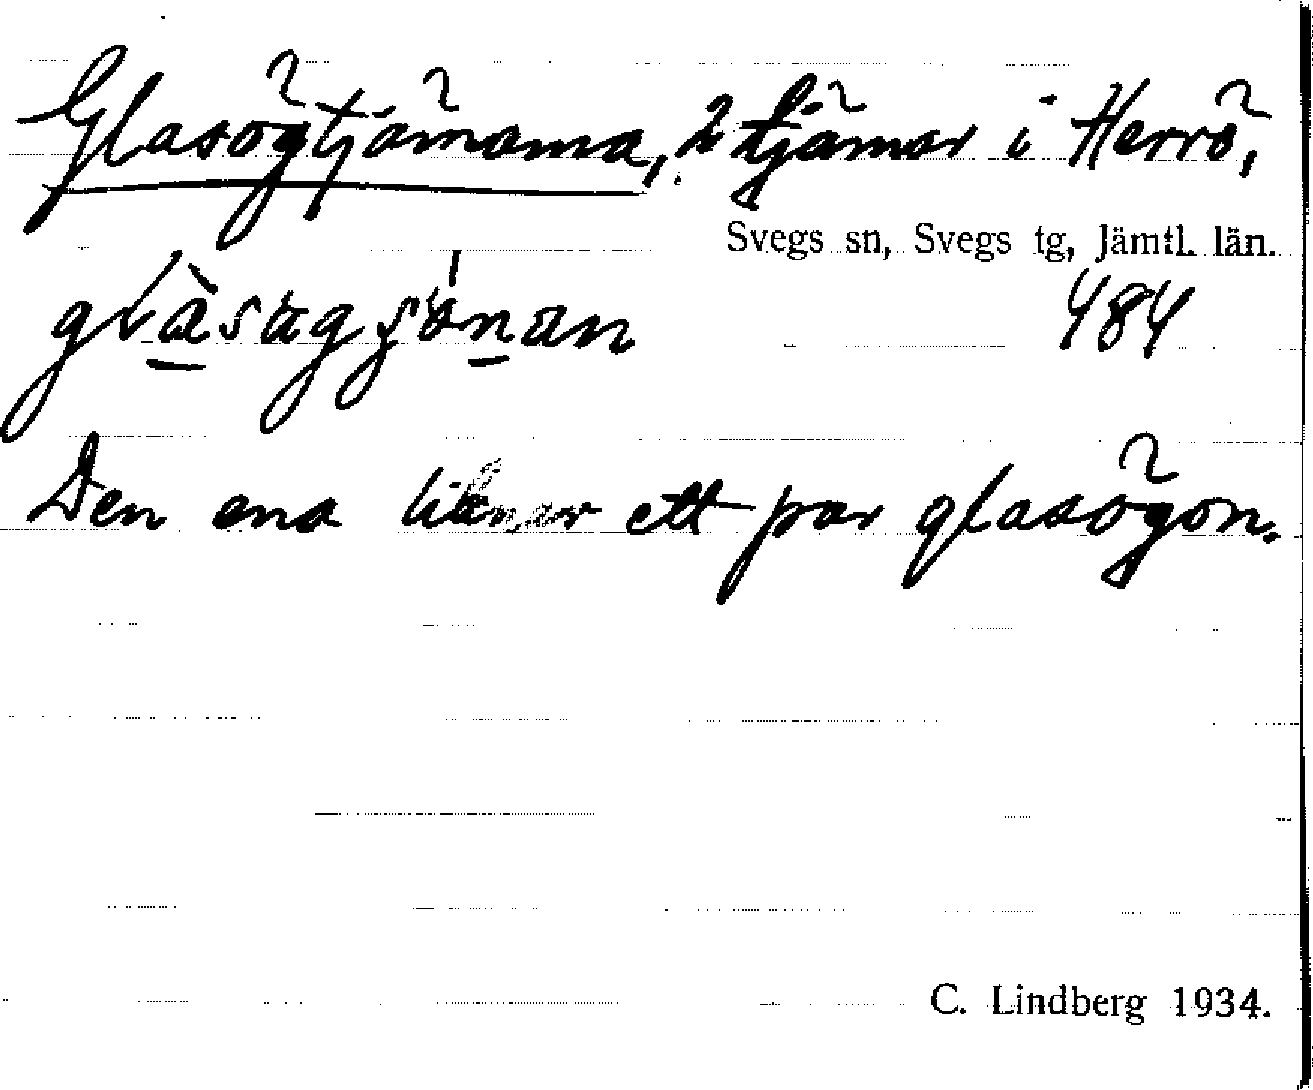 Glasögtjärnarna, 2 tjärnar i Herrö,
Svegs sn, Svegs tg, Jämtl. län.
484
Den ena liknar ett par glasögon.
C. Lindberg 1934.